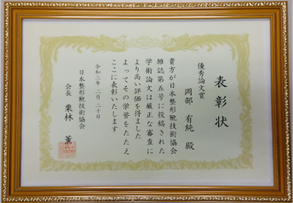 表彰状
優秀論文賞
岡部 有純 殿
貴方が日本整形靴技術協会
雑誌第五号に投稿された
学術論文は厳正な審査に
より高い評価を得ました
よってその学誉をたたえ
ここに表彰いたします
日本整形靴技術協会
会長 栗林 薫